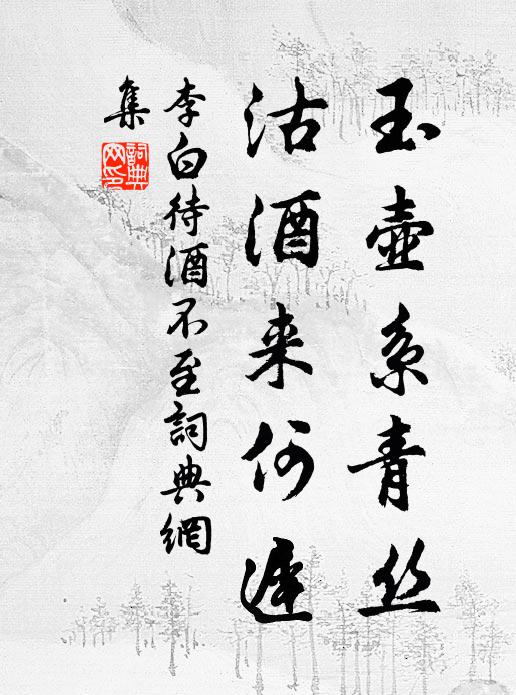 玉壶系青丝
沽酒来何遲
李白待酒不至詞典網
集
詞典
网印